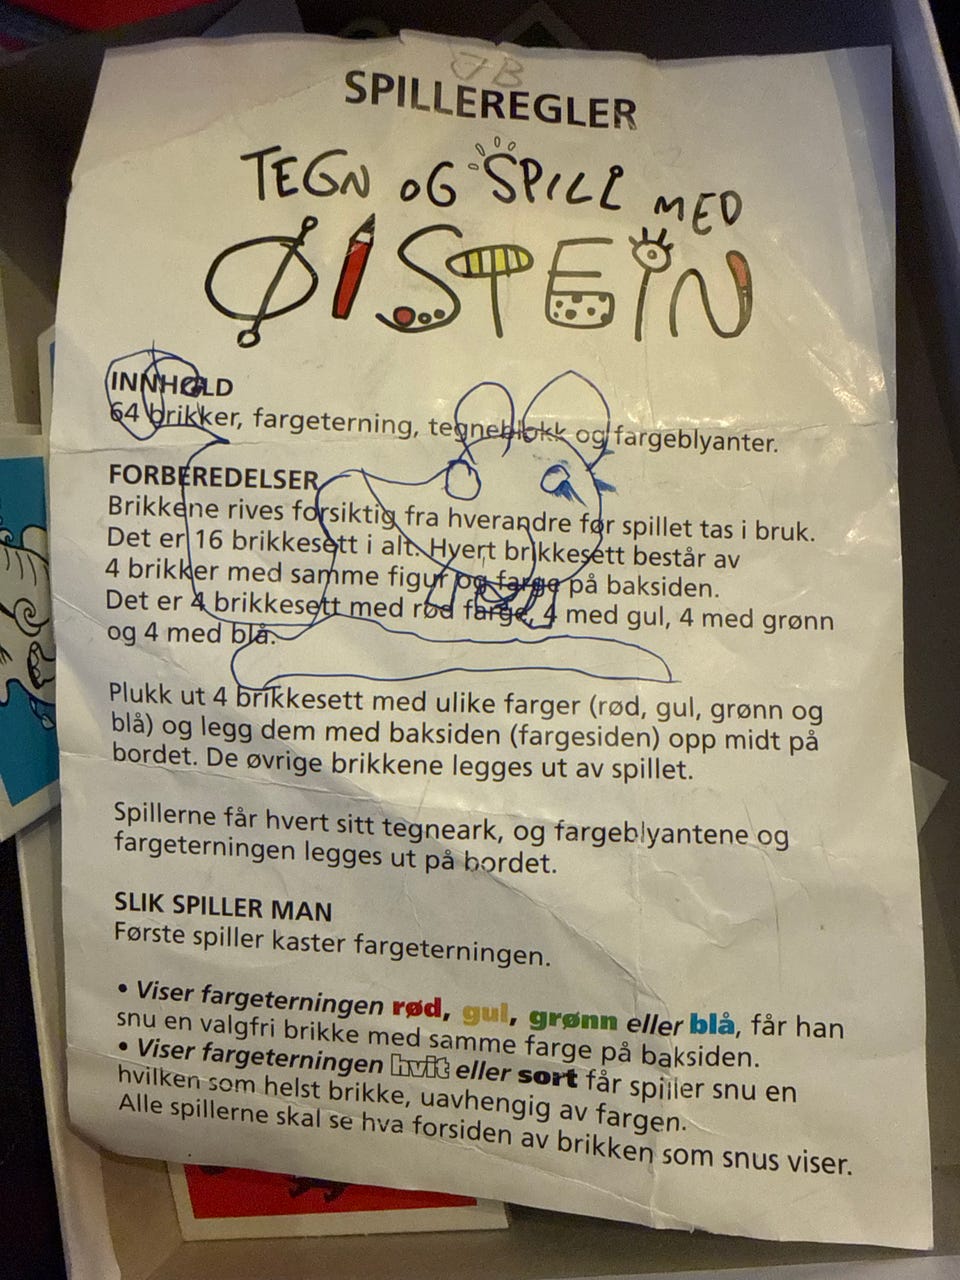 JB
SPILLEREGLER
TEGN OG SPILL MED
ØISTEIN
INNHOLD
64 brikker, fargeterning, tegneblokk og fargeblyanter.
FORBEREDELSER
Brikkene rives forsiktig fra hverandre før spillet tas i bruk.
Det er 16 brikkesett i alt. Hvert brikkesett består av
4 brikker med samme figur og farge på baksiden.
Det er 4 brikkesett med rød farge, 4 med gul, 4 med grønn
og 4 med blå.
Plukk ut 4 brikkesett med ulike farger (rød, gul, grønn og
blå) og legg dem med baksiden (fargesiden) opp midt på
bordet. De øvrige brikkene legges ut av spillet.
Spillerne får hvert sitt tegneark, og fargeblyantene og
fargeterningen legges ut på bordet.
SLIK SPILLER MAN
Første spiller kaster fargeterningen.
• Viser fargeterningen rød, gul, grønn eller blå, får han
snu en valgfri brikke med samme farge på baksiden.
• Viser fargeterningen hvit eller sort får spiller snu en
hvilken som helst brikke, uavhengig av fargen.
Alle spillerne skal se hva forsiden av brikken som snus viser.